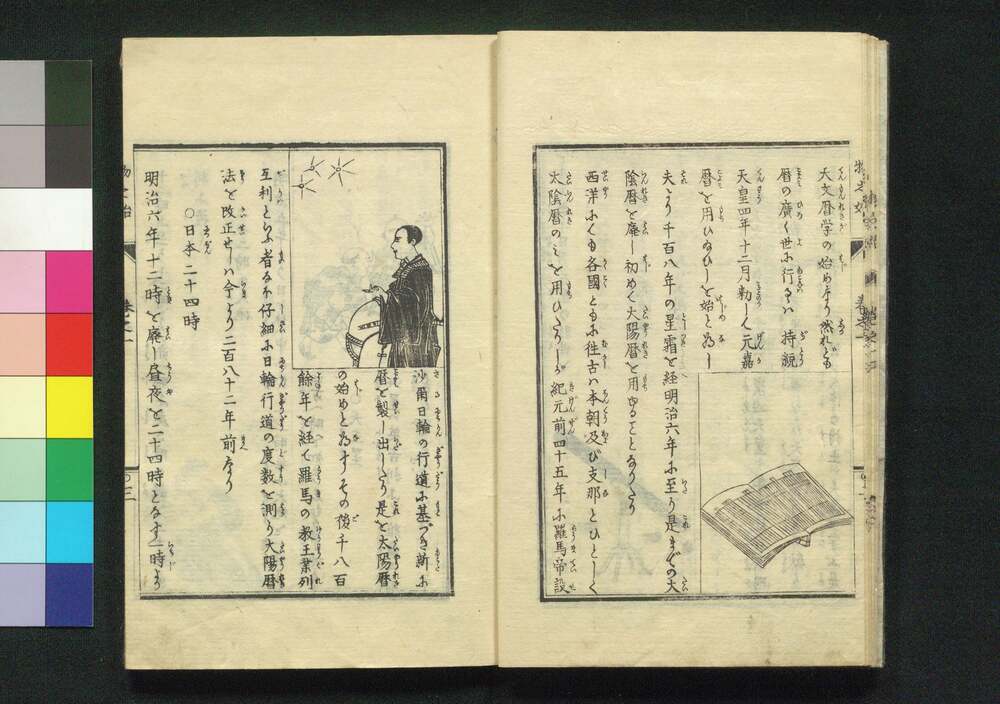 天文暦学の始めなり然れども
暦の廣く世に行るゝハ持統
天皇四年十二月勅して元嘉
暦を用ひ給ひしを始とす
夫より千百八年の星霜を経明治六年に至り是までの大
陰暦を廃し初めて大陽暦を用ゆることとなりたり
西洋にても各國ともに往古ハ本朝及び支那とひとしく
太陰暦のミを用ひたりしが紀元前四十五年に羅馬帝設
沙爾日輪の行道に基づき新に
暦を製し出したり是を太陽暦
の始めと為すその後千八百
餘年を経て羅馬の教王業列
互利といふ者なほ仔細に日輪行道の度数を測り大陽暦
法を改正せしハ今より二百八十二年前なり
○日本二十四時
明治六年十二時を廃し昼夜を二十四時となす一時より